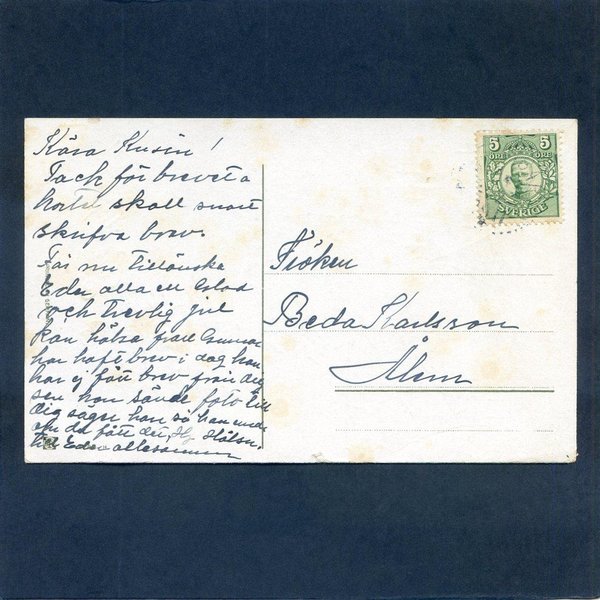 Kära Kusin!
Tack för brevet o
kortet skall snart
skrifva brev.
Får nu tillönska
Eder alla en Glad
och Trevlig jul
kan hälsa från Gunnar
har haft brev i dag han
har ej fått brev från dig
sen han sände foto till
dig säger han så han undr
om du fått det, Hj Hälsn.
till Eder allesammans
5 5
ÖRE ÖRE
SVERIGE
Fröken
Beda Karlsson
Ålem